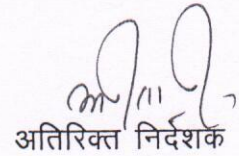 अतिरिक्त निर्देशक